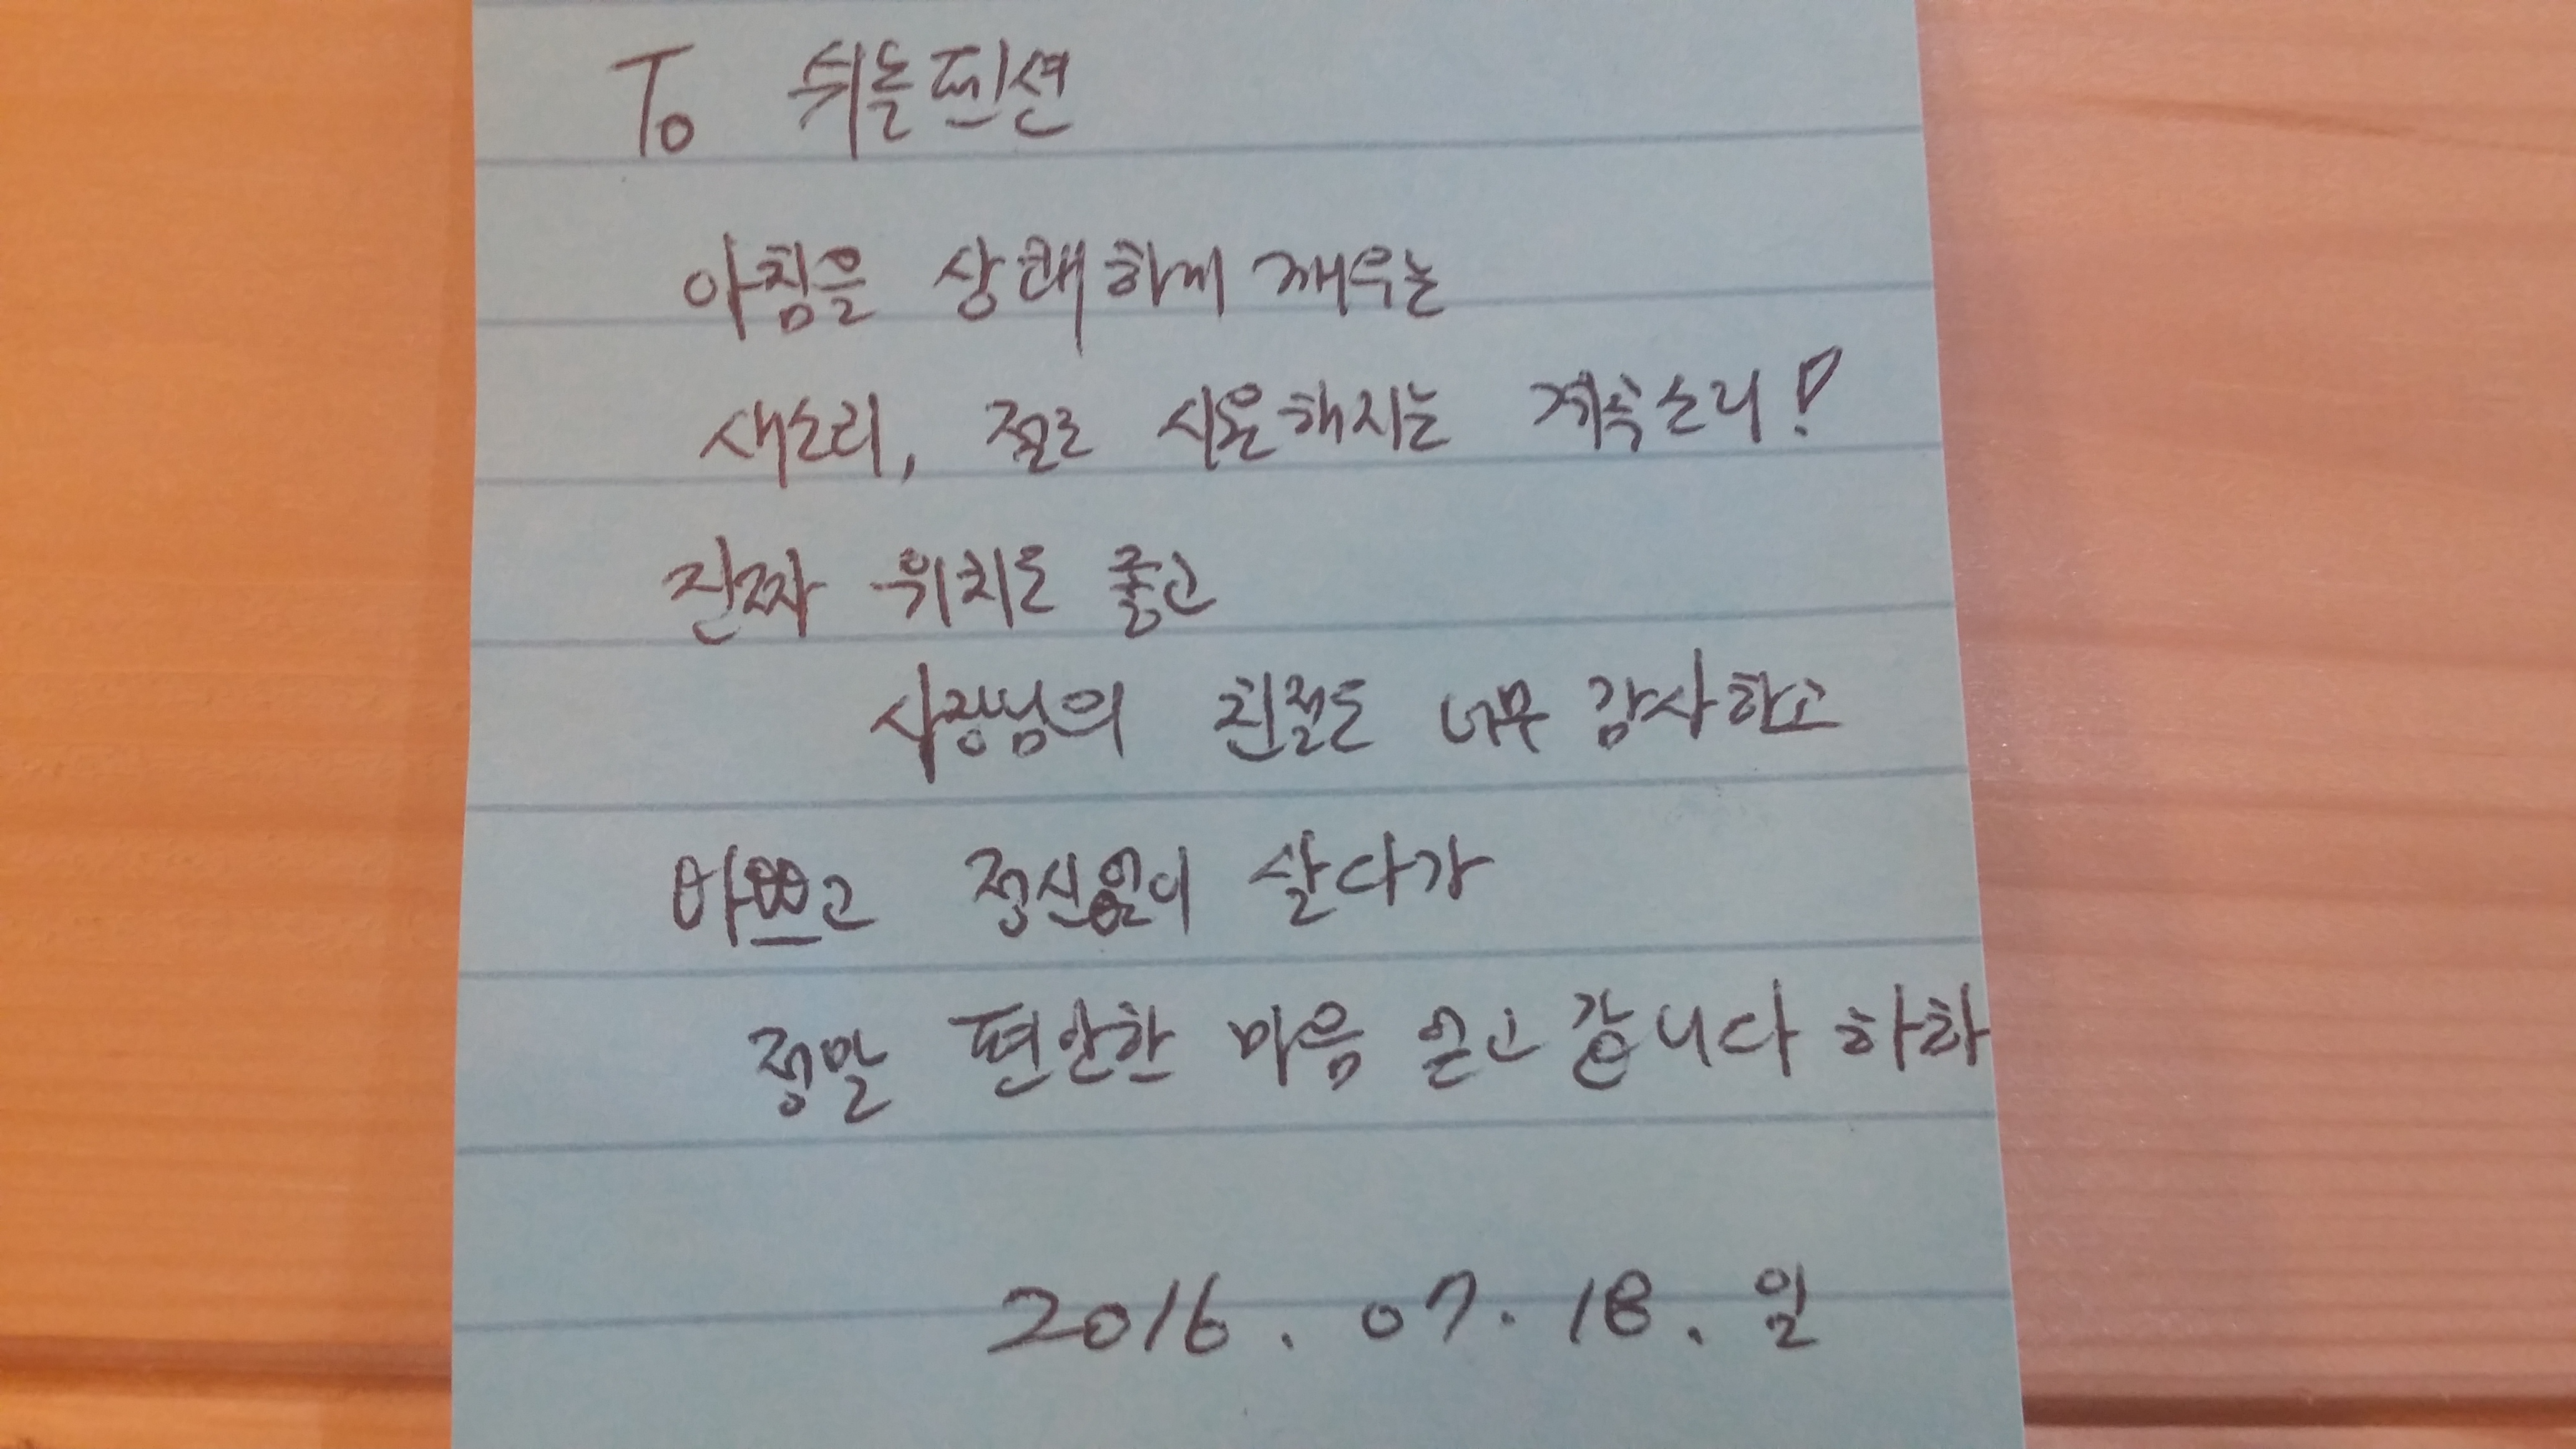 To 쉬는펜션
아침을 상쾌하게 깨우는
새소리, 절로 시원해지는 계곡소리!
진짜 위치도 좋고
사장님의 친절도 너무 감사하고
바쁘고 정신없이 살다가
정말 편안한 마음 얻고 갑니다 하하
2016. 07. 18. 일